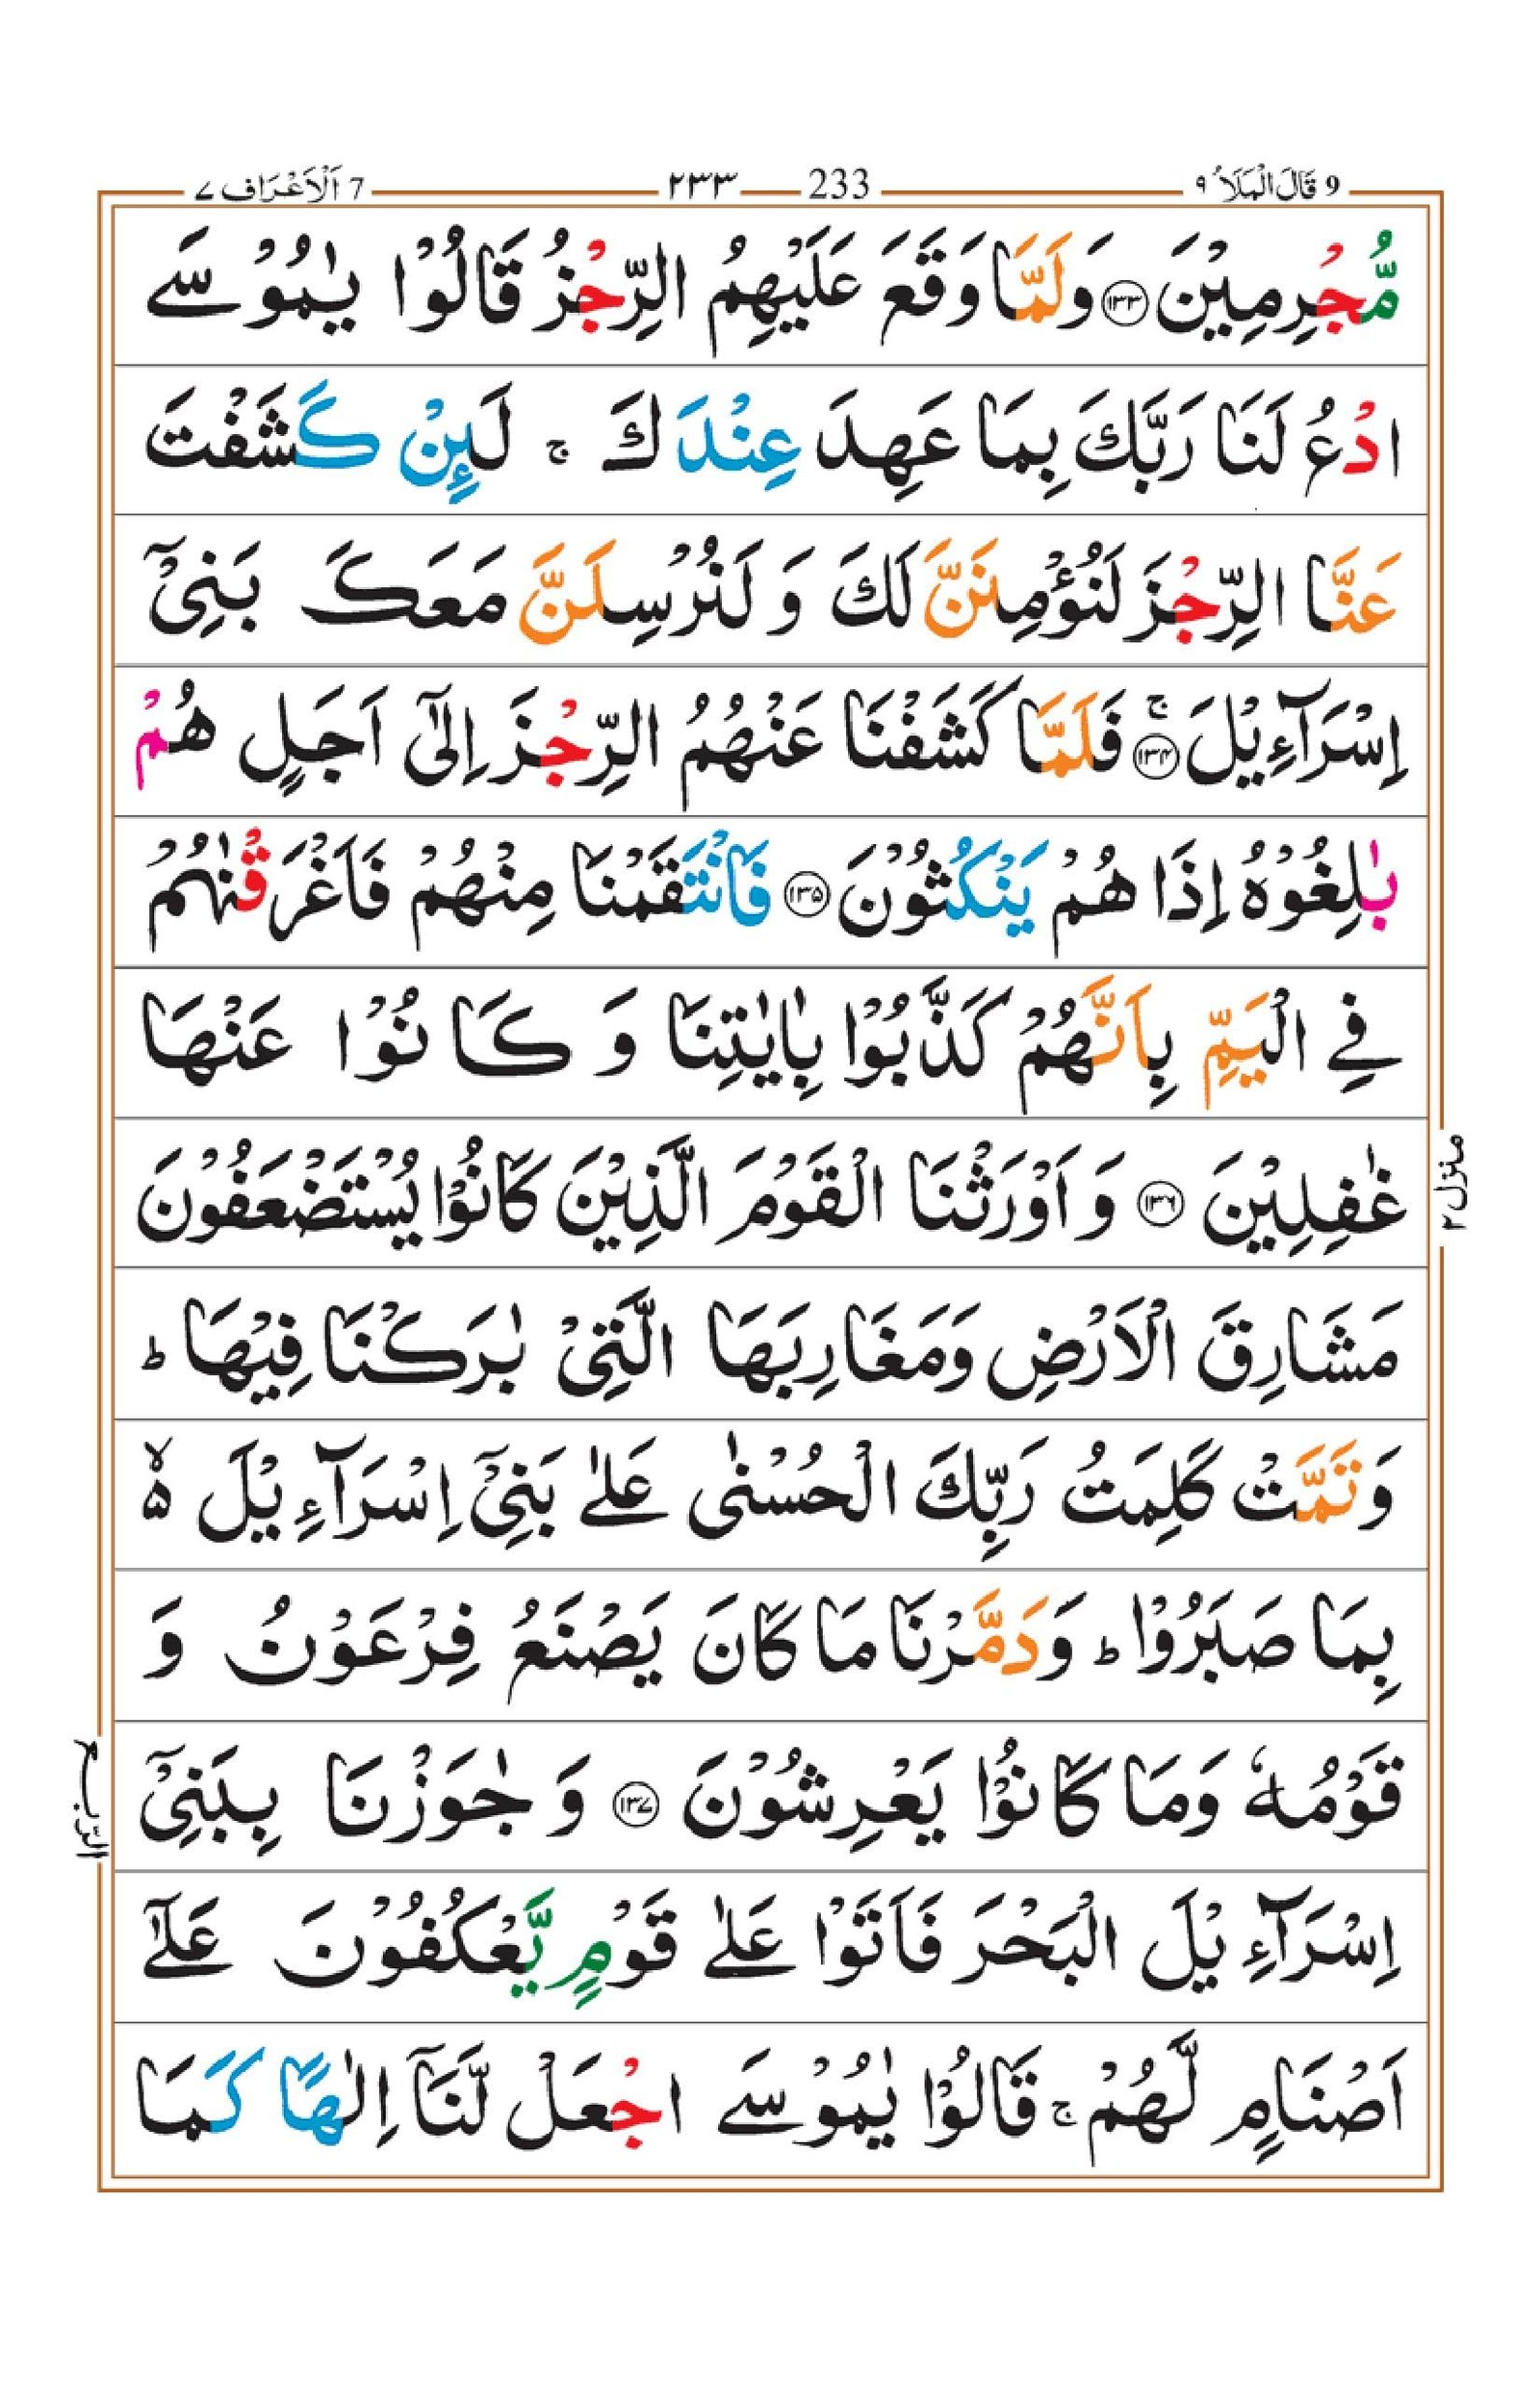 9 قَالَ الْمَلَاُ ٩ 233 ٢٣٣ 7 اَلْاَعْرَاف ٧
مُّجْرِمِيْنَ ١٣٣ وَلَمَّا وَقَعَ عَلَيْهِمُ الرِّجْزُ قَالُوْا يٰمُوْسَے
ادْعُ لَنَا رَبَّكَ بِمَا عَهِدَ عِنْدَكَ ۚ لَئِنْ كَشَفْتَ
عَنَّا الرِّجْزَ لَنُؤْمِنَنَّ لَكَ وَ لَنُرْسِلَنَّ مَعَكَ بَنِيْۤ
اِسْرَآءِيْلَ ۚ ١٣٤ فَلَمَّا كَشَفْنَا عَنْهُمُ الرِّجْزَ اِلٰۤى اَجَلٍ هُمْ
بٰلِغُوْهُ اِذَا هُمْ يَنْكُثُوْنَ ١٣٥ فَانْتَقَمْنَا مِنْهُمْ فَاَغْرَقْنٰهُمْ
فِے الْيَمِّ بِاَنَّهُمْ كَذَّبُوْا بِاٰيٰتِنَا وَ كَانُوْا عَنْهَا
غٰفِلِيْنَ ١٣٦ وَ اَوْرَثْنَا الْقَوْمَ الَّذِيْنَ كَانُوْا يُسْتَضْعَفُوْنَ
منزل ٢
مَشَارِقَ الْاَرْضِ وَمَغَارِبَهَا الَّتِيْ بٰرَكْنَا فِيْهَا ؕ
وَتَمَّتْ كَلِمَتُ رَبِّكَ الْحُسْنٰى عَلٰى بَنِيْۤ اِسْرَآءِيْلَ ۙ۬
بِمَا صَبَرُوْا ؕ وَدَمَّرْنَا مَا كَانَ يَصْنَعُ فِرْعَوْنُ وَ
قَوْمُهٗ وَمَا كَانُوْا يَعْرِشُوْنَ ١٣٧ وَ جٰوَزْنَا بِبَنِيْۤ
الرّبع
اِسْرَآءِيْلَ الْبَحْرَ فَاَتَوْا عَلٰى قَوْمٍ يَّعْكُفُوْنَ عَلٰۤى
اَصْنَامٍ لَّهُمْ ۚ قَالُوْا يٰمُوْسَے اجْعَلْ لَّنَاۤ اِلٰهًا كَمَا